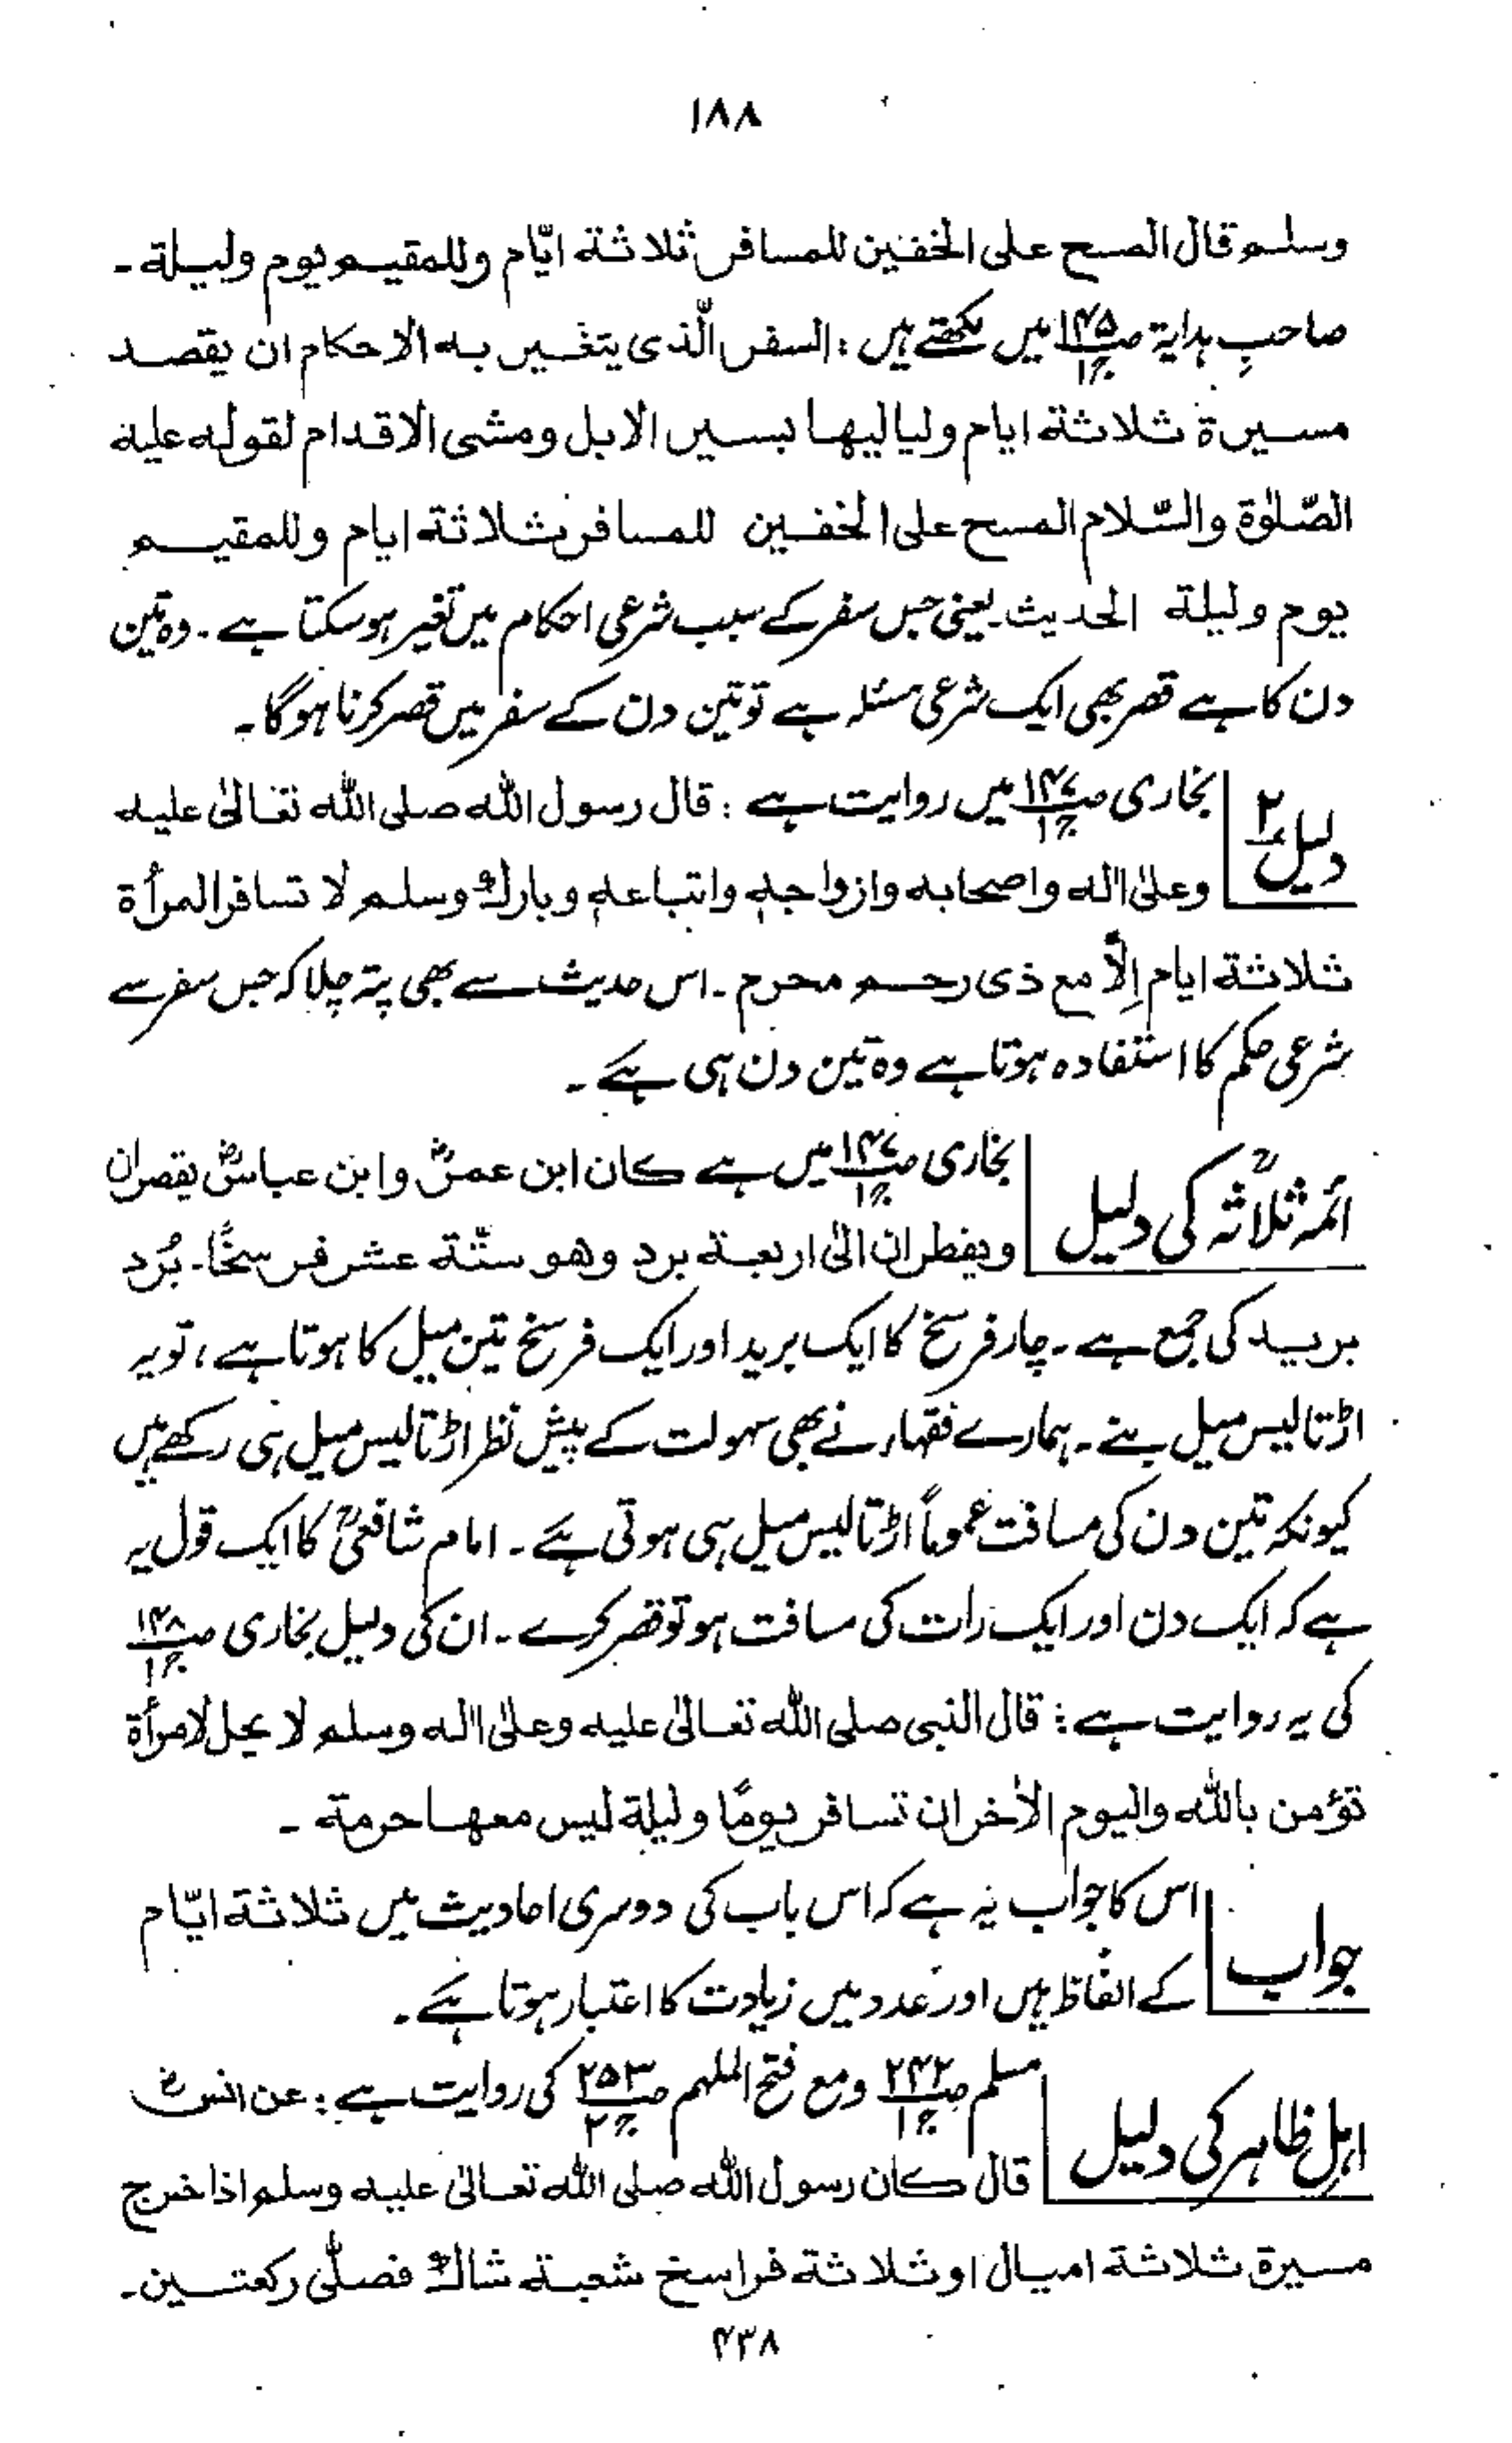 ١٨٨
وسلم قال المسح على الخفين للمسافر ثلاثة ايّام وللمقيم يوم وليلة ـ
صاحبِ ہدایۃ ص۱۴۵ ج۱ میں لکھتے ہیں : السفر الّذى يتغير به الاحكام ان يقصد
مسيرة ثلاثة ايام ولياليها بسير الابل ومشى الاقدام لقوله عليه
الصّلوٰة والسّلام المسح على الخفين للمسافر ثلاثة ايام وللمقيم
يوم وليلة الحديث۔ یعنی جس سفر کے سبب شرعی احکام میں تغیر ہو سکتا ہے ۔ وہ تین
دن کا ہے قصر بھی ایک شرعی مسئلہ ہے تو تین دن کے سفر میں قصر کرنا ہوگا ۔
دلیل ۲
بخاری ص۱۴۷ ج۱ میں روایت ہے : قال رسول الله صلى الله تعالىٰ عليه
وعلىٰ اٰله واصحابه وازواجهٖ واتباعهٖ وبارك وسلم لا تسافر المرأة
ثلاثة ايام اِلّا مع ذى رحم محرم ۔ اس حدیث سے بھی پتہ چلا کہ جس سفر سے
شرعی حکم کا استفادہ ہوتا ہے وہ تین دن ہی ہے ۔
ائمہ ثلاثہؒ کی دلیل
بخاری ص۱۴۷ ج۱ میں ہے كان ابن عمرؓ وابن عباسؓ يقصران
ويفطران الىٰ اربعة برد وهو ستّة عشر فرسخًا۔ بُرد
برید کی جمع ہے ۔ چار فرسخ کا ایک برید اور ایک فرسخ تین میل کا ہوتا ہے ، تو یہ
اڑتالیس میل بنے ۔ ہمارے فقہاء نے بھی سہولت کے پیش نظر اڑتالیس میل ہی رکھے ہیں
کیونکہ تین دن کی مسافت عموماً اڑتالیس میل ہی ہوتی ہے ۔ امام شافعیؒ کا ایک قول یہ
ہے کہ ایک دن اور ایک رات کی مسافت ہو تو قصر کرے ۔ ان کی دلیل بخاری ص۱۴۸ ج۱
کی یہ روایت ہے : قال النبى صلى الله تعالىٰ عليه وعلىٰ اٰله وسلم لا يحل لامرأة
تؤمن بالله واليوم الاٰخر ان تسافر يومًا وليلة ليس معها حرمة ـ
جواب
اس کا جواب یہ ہے کہ اس باب کی دوسری احادیث میں ثلاثة ايّام
کے الفاظ ہیں اور عدد میں زیادت کا اعتبار ہوتا ہے ۔
اہلِ ظاہر کی دلیل
مسلم ص۲۴۲ ج۱ ومع فتح الملہم ص۲۵۳ ج۲ کی روایت ہے : عن انسؓ
قال كان رسول الله صلى الله تعالىٰ عليه وسلم اذا خرج
مسيرة ثلاثة اميال او ثلاثة فراسخ شعبة شاك فصلّى ركعتين۔
۴۳۸